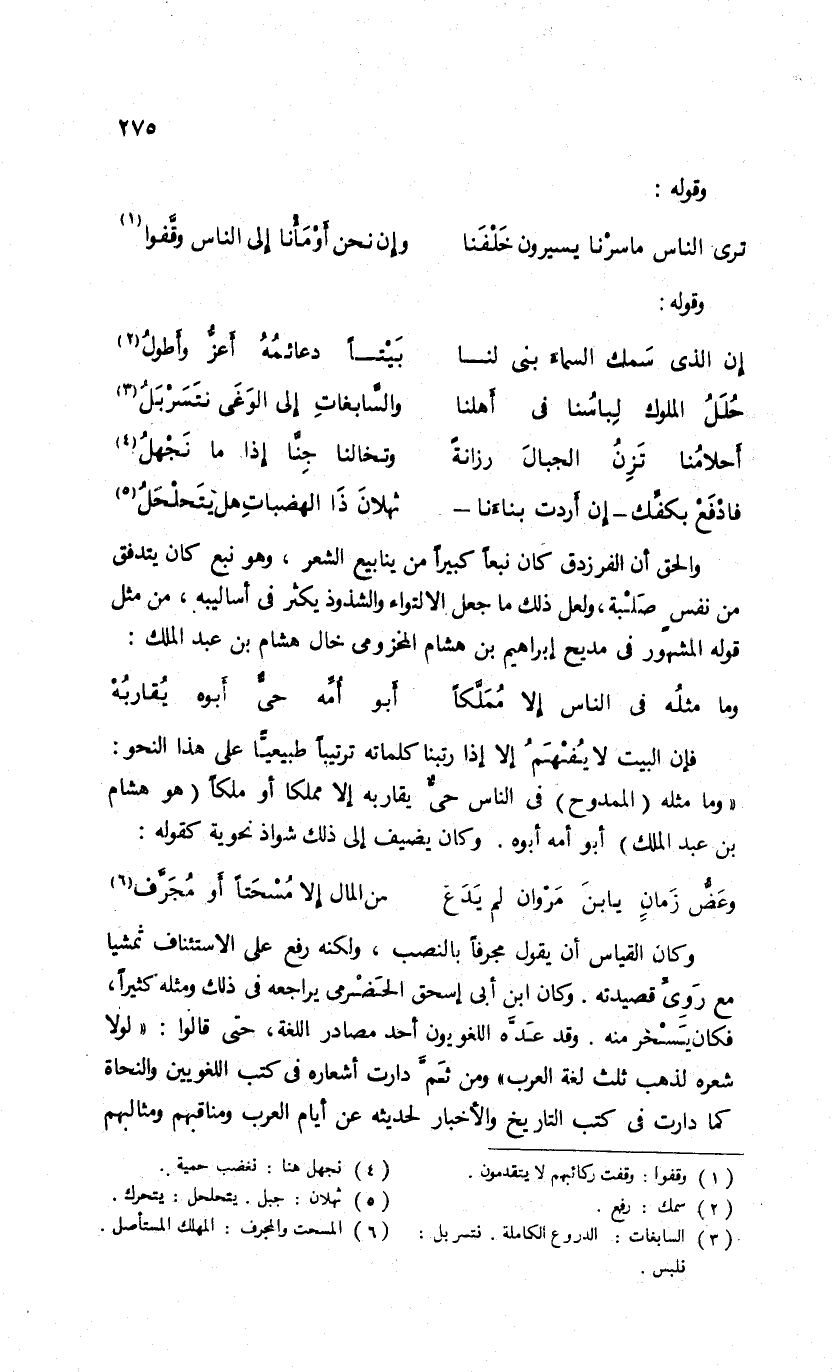 ٢٧٥
وقوله :
ترى الناس ماسرْنا يسيرون خَلْفَنا وإن نحن أَوْمَأْنا إلى الناس وقَّفوا(١)
وقوله :
إن الذى سَمك السماء بنى لنــا بَيْتــاً دعائمُهُ أَعزُّ وأَطولُ(٢)
حُلَلُ الملوك لِباسُنا فى أَهلنا والسَّابغاتِ إلى الوَغَى نتَسَرْبَلُ(٣)
أَحلامُنا تَزِنُ الجبالَ رزانةً وتخالنا جِنًّا إذا ما نَجْهلُ(٤)
فادْفَعْ بكفِّك – إن أَردت بناءَنا – ثهلانَ ذَا الهضباتِ هل يَتَحلْحَلُ(٥)
والحق أن الفرزدق كان نبعاً كبيراً من ينابيع الشعر ، وهو نبع كان يتدفق
من نفس صَلْبة ، ولعل ذلك ما جعل الالتواء والشذوذ يكثر فى أساليبه ، من مثل
قوله المشهور فى مديح إبراهيم بن هشام المخزومى خال هشام بن عبد الملك :
وما مثلُه فى الناس إلا مُمَلَّكاً أَبو أُمِّه حىٌّ أَبوه يُقاربُهْ
فإن البيت لا يُفْهَمُ إلا إذا رتبنا كلماته ترتيباً طبيعيًّا على هذا النحو :
« وما مثله ( الممدوح ) فى الناس حىٌّ يقاربه إلا مملكا أو ملكاً ( هو هشام
بن عبد الملك ) أبو أمه أبوه . وكان يضيف إلى ذلك شواذ نحوية كقوله :
وعَضُّ زَمانٍ يابنَ مَرْوان لم يَدَعْ من المال إلا مُسْحَتاً أَو مُجَرَّف(٦)
وكان القياس أن يقول مجرفاً بالنصب ، ولكنه رفع على الاستئناف تمشيا
مع رَوِىِّ قصيدته . وكان ابن أبى إسحق الحَضْرمى يراجعه فى ذلك ومثله كثيراً ،
فكان يَسْخر منه . وقد عدَّه اللغويون أحد مصادر اللغة ، حتى قالوا : « لولا
شعره لذهب ثلث لغة العرب » ومن ثَمَّ دارت أشعاره فى كتب اللغويين والنحاة
كما دارت فى كتب التاريخ والأخبار لحديثه عن أيام العرب ومناقبهم ومثالبهم
(١) وقفوا : وقفت ركائبهم لا يتقدمون .
(٢) سمك : رفع .
(٣) السابغات : الدروع الكاملة . نتسربل :
نلبس .
(٤) نجهل هنا : نغضب حمية .
(٥) ثهلان : جبل . يتحلحل : يتحرك .
(٦) المسحت والمجرف : المهلك المستأصل .